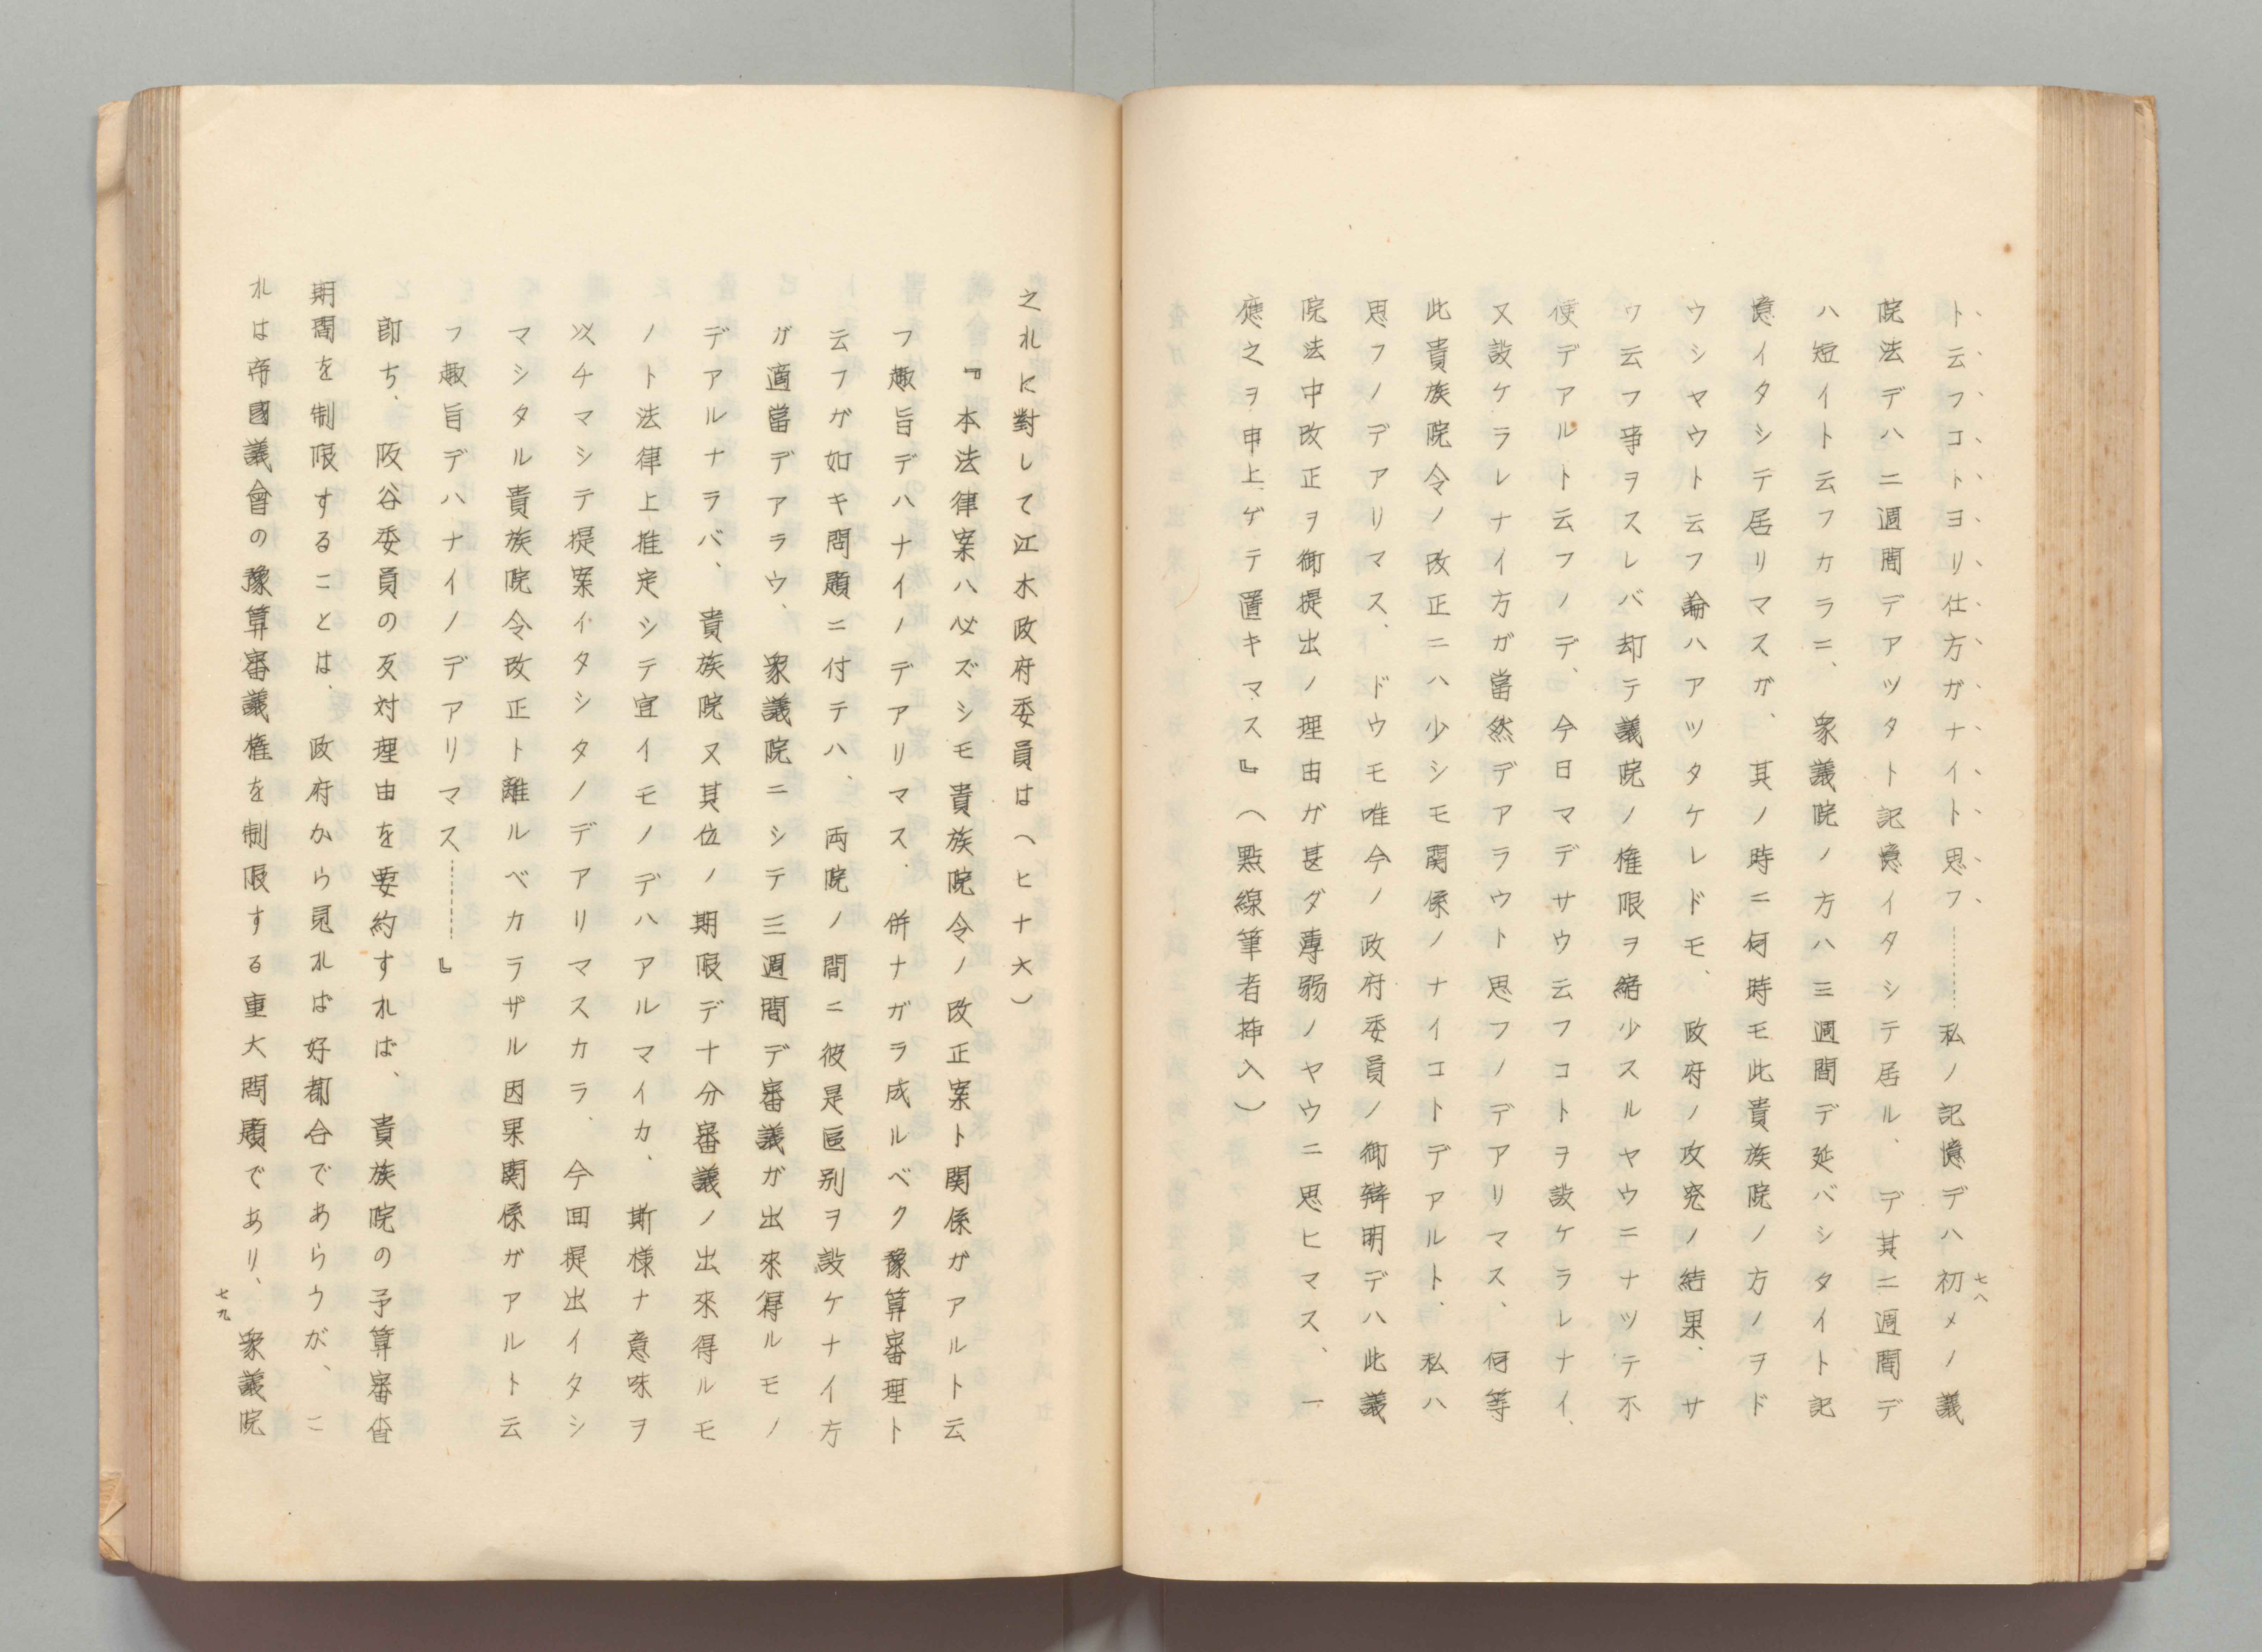 ト云フコトヨリ仕方ガナイト思フ………私ノ記憶デハ初メノ議
院法デハ二週間デアツタト記憶イタシテ居ル、デ其二週間デ
ハ短イト云フカラニ、衆議院ノ方ハ三週間デ延バシタイト記
憶イタシテ居リマスガ、其ノ時ニ何時モ此貴族院ノ方ノヲド
ウシヤウト云フ論ハアツタケレドモ、政府ノ攻究ノ結果、サ
ウ云フ事ヲスレバ却テ議院ノ権限ヲ縮少スルヤウニナツテ不
便デアルト云フノデ、今日マデサウ云フコトヲ設ケラレナイ、
又設ケラレナイ方ガ當然デアラウト思フノデアリマス、何等
此貴族院令ノ改正ニハ少シモ関係ノナイコトデアルト、私ハ
思フノデアリマス、ドウモ唯今ノ政府委員ノ御辯明デハ此議
院法中改正ヲ御提出ノ理由ガ甚ダ薄弱ノヤウニ思ヒマス、一
應之ヲ申上ゲテ置キマス』（點線筆者挿入）
七八
之れに對して江木政府委員は（ヒナ六）
『本法律案ハ必ズシモ貴族院令ノ改正案ト関係ガアルト云
フ趣旨デハナイノデアリマス、併ナガラ成ルベク豫算審理ト
云フガ如キ問題ニ付テハ、両院ノ間ニ彼是區別ヲ設ケナイ方
ガ適當デアラウ、衆議院ニシテ三週間デ審議ガ出來得ルモノ
デアルナラバ、貴族院又其位ノ期限デ十分審議ノ出來得ルモ
ノト法律上推定シテ宜イモノデハアルマイカ、斯様ナ意味ヲ
以チマシテ提案イタシタノデアリマスカラ、今回提出イタシ
マシタル貴族院令改正ト離ルベカラザル因果関係ガアルト云
フ趣旨デハナイノデアリマス………』
即ち、阪谷委員の反対理由を要約すれば、貴族院の予算審査
期間を制限することは、政府から見れば好都合であらうが、こ
れは帝國議會の豫算審議権を制限する重大問題であり、衆議院
七九